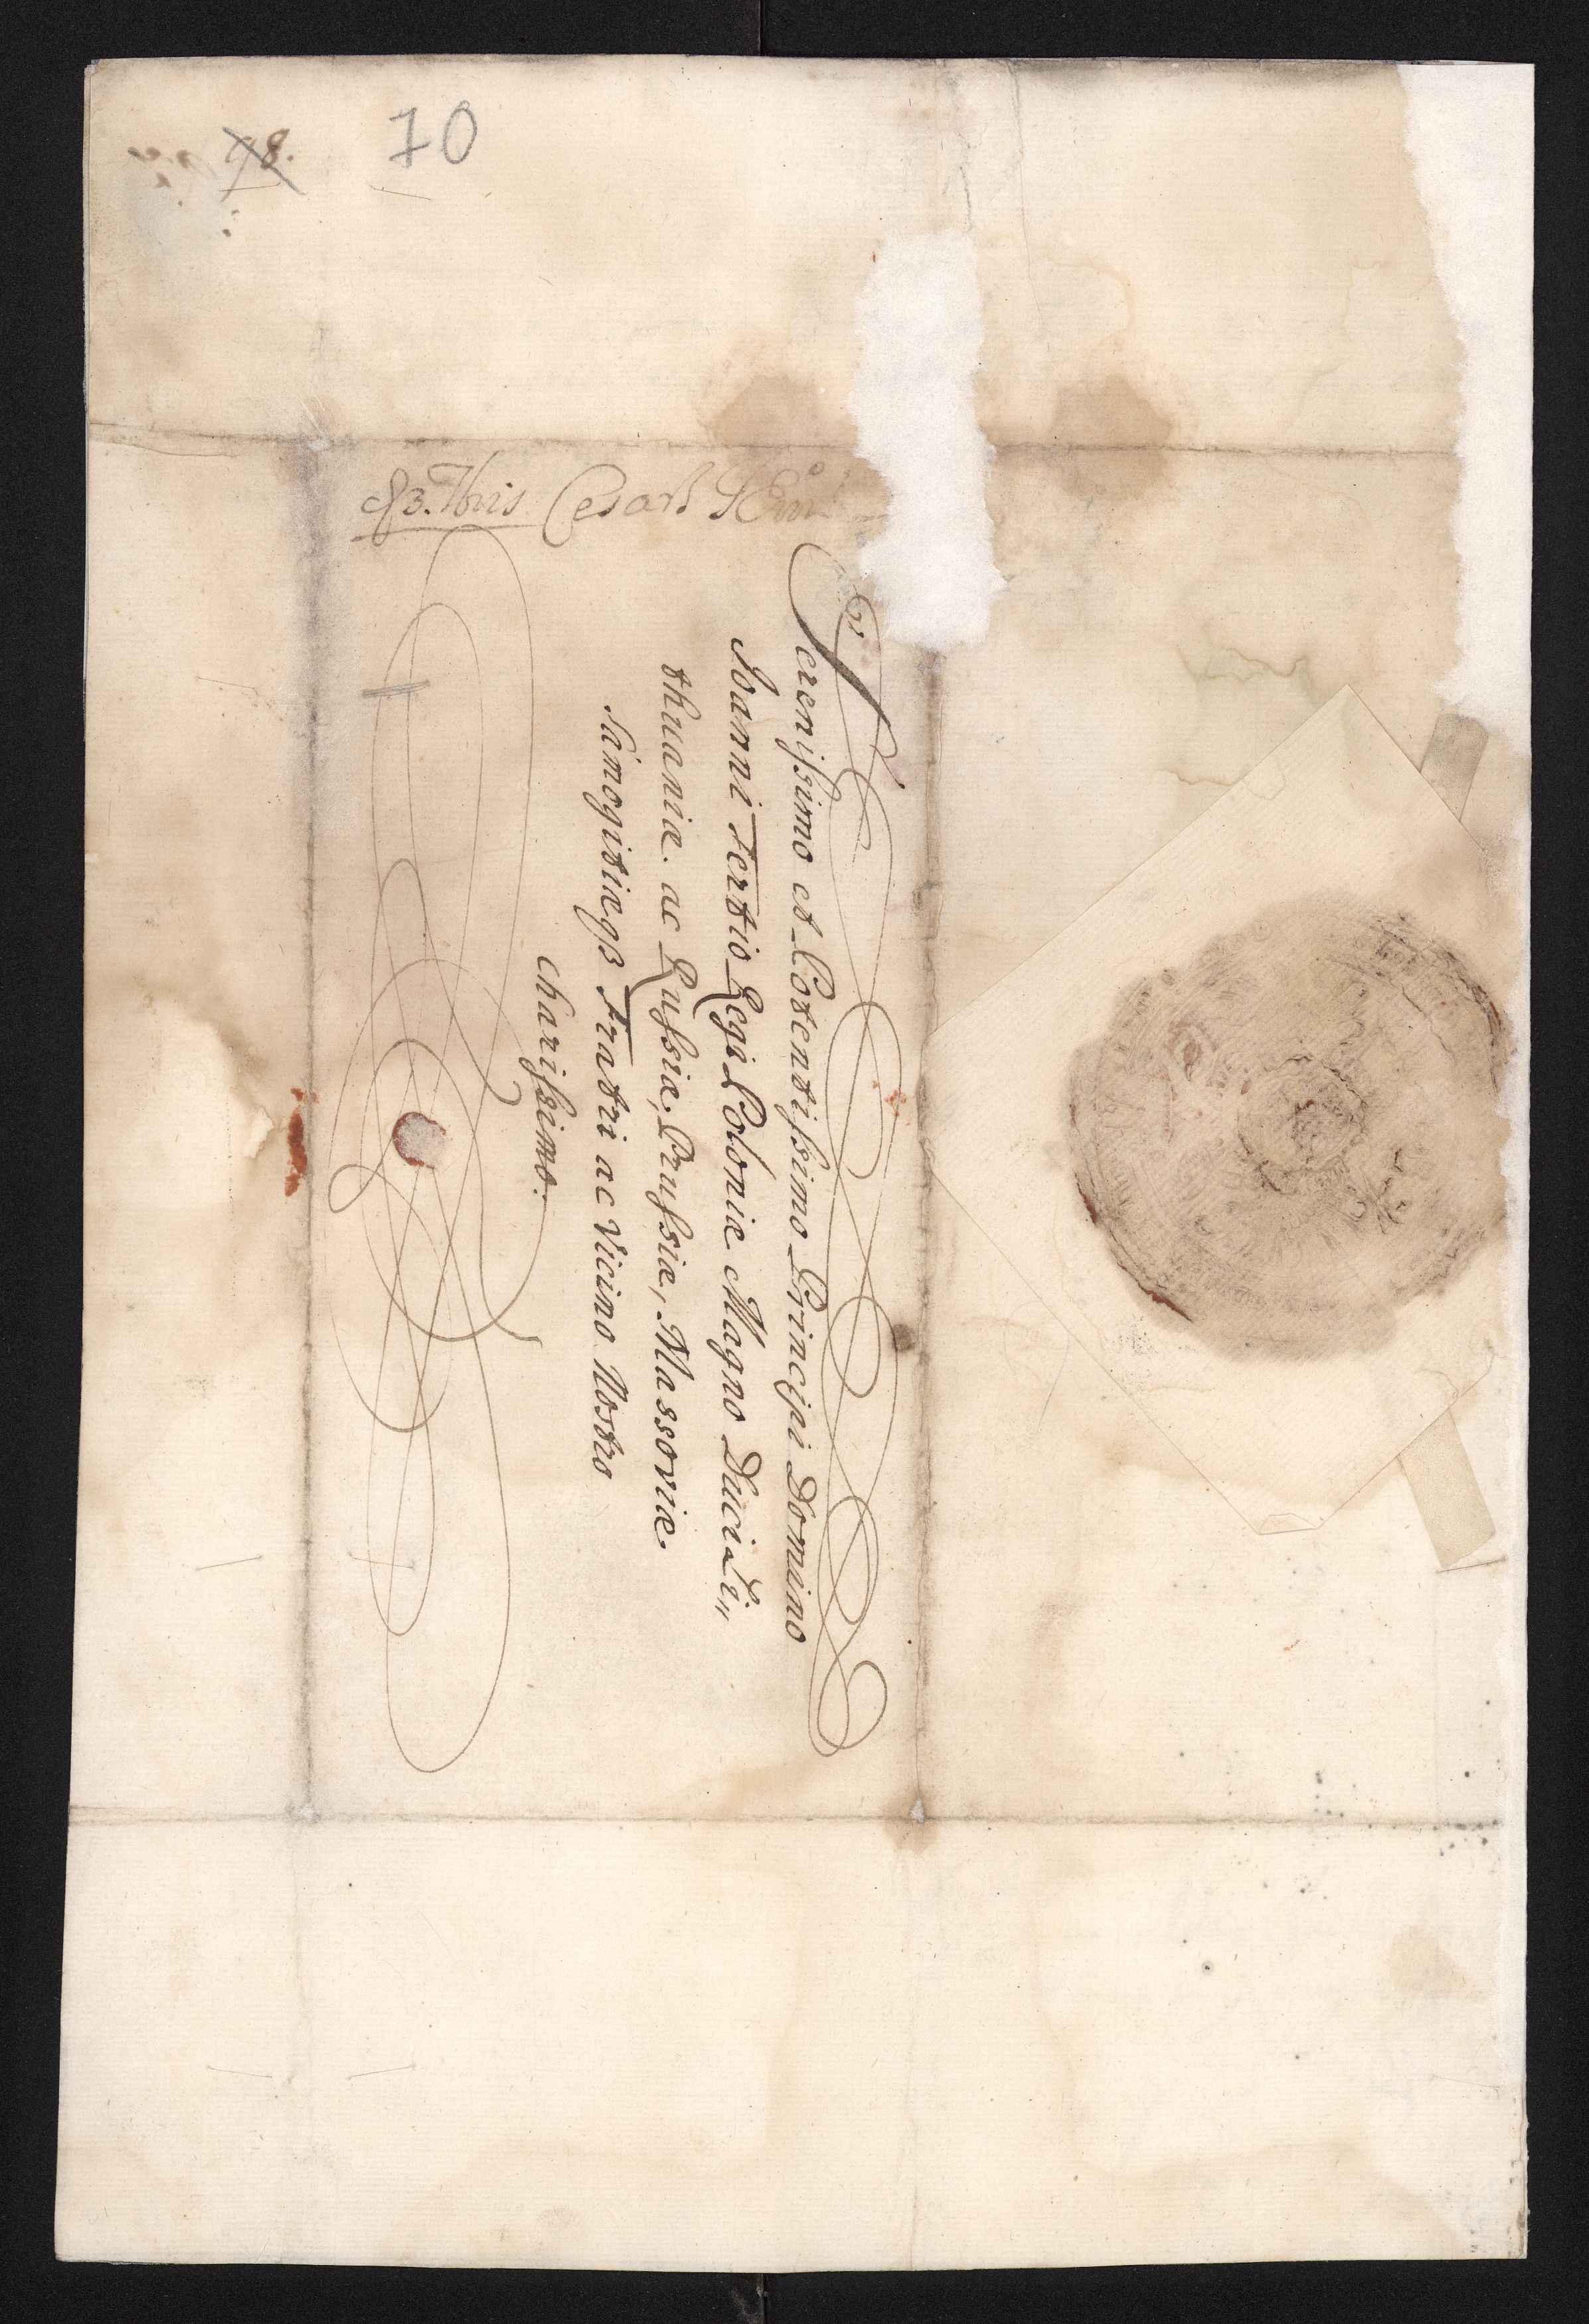 98.
70
Serenissimo et Potentissimo Principi Domino
Ioanni Tertio Regi Poloniæ Magno Duci Li„
thuaniæ. ac Russiæ, Prussiæ, Massoviæ.
Samogitiæqз Fratri ac Vicino Nostro
charissimo.
Cesar